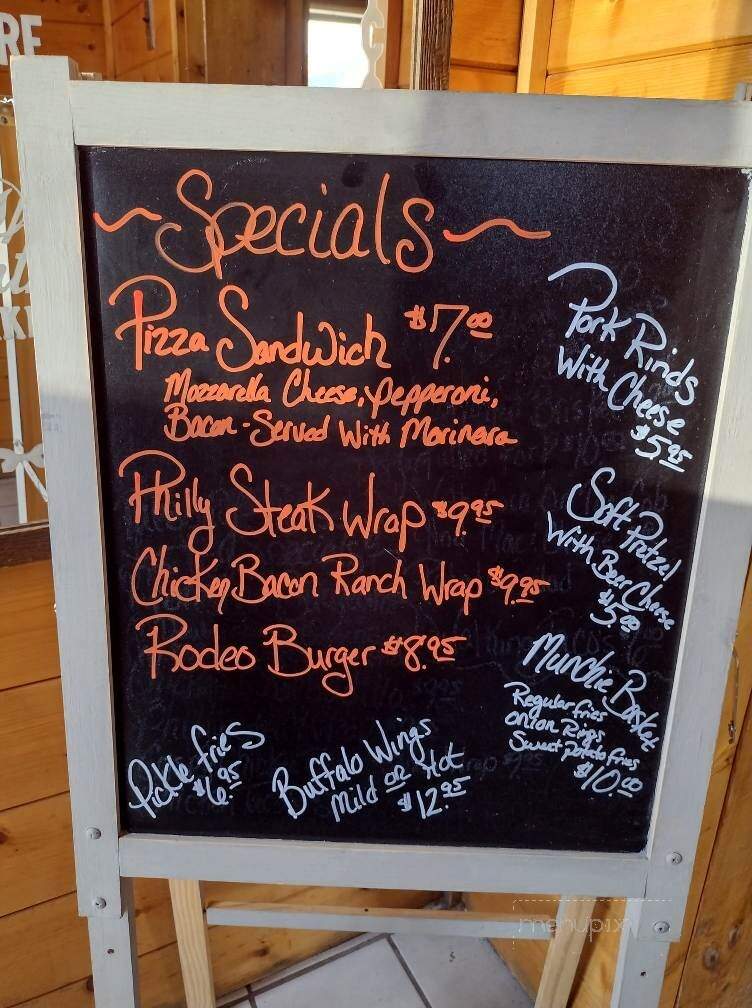 RE
~Specials~
Pizza Sandwich $7.00
Mozzarella Cheese, Pepperoni,
Bacon - Served With Marinara
Philly Steak Wrap $9.95
Chicken Bacon Ranch Wrap $9.95
Rodeo Burger $8.95
Pork Rinds
With Cheese
$5.95
Soft Pretzel
With Beer Cheese
$5.00
Munchie Basket
Regular fries
onion Rings
Sweet potato fries
$10.00
Pickle fries
$6.95
Buffalo Wings
Mild or Hot
$12.95
menupix